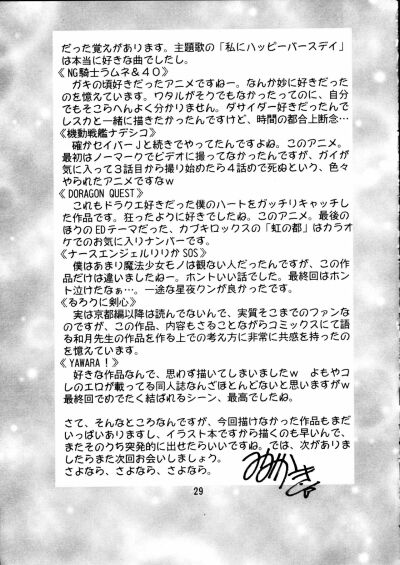 だった覚えがあります。主題歌の「私にハッピーバースデイ」
は本当に好きな曲でしたし。
《NG騎士ラムネ&40》
　ガキの頃好きだったアニメですねー。なんか妙に好きだった
のを憶えています。ワタルがそうでもなかったってのに、自分
でもそこらへんよく分かりません。ダサイダー好きだったんで
レスカと一緒に描きたかったんですけど、時間の都合上断念…
《機動戦艦ナデシコ》
　確かセイバーJと続きでやってたんですよね。このアニメ。
最初はノーマークでビデオに撮ってなかったんですが、ガイが
気に入って3話目から撮り始めたら4話めで死ぬという、色々
やられたアニメですなw
《DORAGON QUEST》
　これもドラクエ好きだった僕のハートをガッチリキャッチし
た作品です。狂ったように好きでしたね。このアニメ。最後の
ほうのEDテーマだった、カブキロックスの「虹の都」はカラオ
ケでのお気に入りナンバーです。
《ナースエンジェルりりかSOS》
　僕はあまり魔法少女モノは観ない人だったんですが、この作
品だけは違いましたねー。ホントいい話でした。最終回はホン
ト泣けたなぁ…。一途な星夜クンが良かったです。
《るろうに剣心》
　実は京都編以降は読んでないんで、実質そこまでのファンな
のですが、この作品、内容もさることながらコミックスにて語
る和月先生の作品を作る上での考え方に非常に共感を持ったの
を憶えています。
《YAWARA!》
　好きな作品なんで、思わず描いてしまいましたw　よもやコ
レのエロが載ってる同人誌なんざほとんどないと思いますがw
最終回でめでたく結ばれるシーン、最高でしたね。
さて、そんなところなんですが、今回描けなかった作品もまだ
いっぱいありますし、イラスト本ですから描くのも早いんで、
またそのうち突発的に出せたらいいですね。では、次がありま
したらまた次回お会いしましょう。
さよなら、さよなら、さよなら。
29